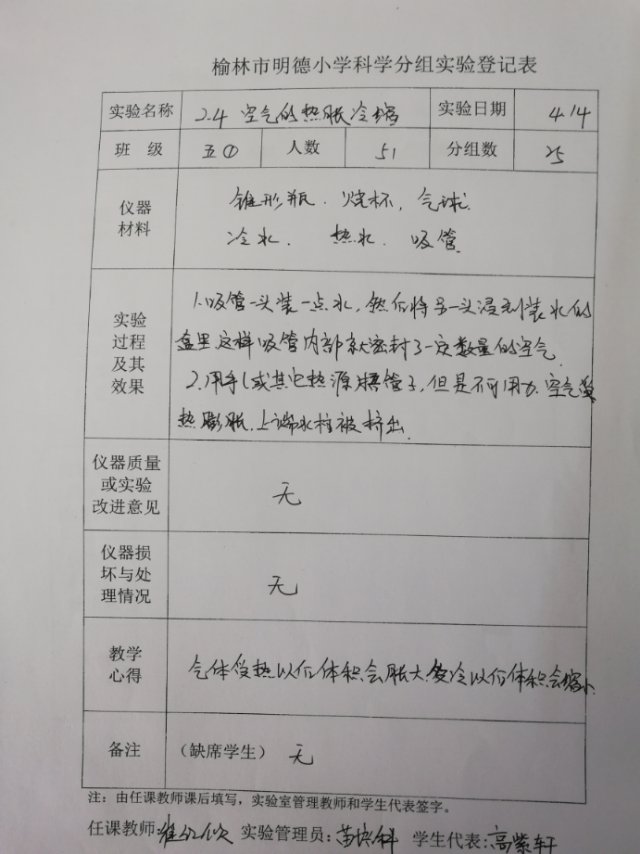 榆林市明德小学科学分组实验登记表
实验名称 2.4 空气的热胀冷缩 实验日期 4.14
班 级 五① 人数 51 分组数 25
仪器材料 锥形瓶. 烧杯, 气球.
冷水. 热水. 吸管
实验过程及其效果 1.吸管一头装一点水,然后将另一头浸到装水的
盒里.这样吸管内部就密封了一定数量的空气.
2.用手(或其它热源 管子,但是不可用 . 空气受
热膨胀.上端水柱被挤出.
仪器质量或实验改进意见 无
仪器损坏与处理情况 无
教学心得 气体受热以后体积会胀大.受冷以后体积会缩小
备注 (缺席学生) 无
注:由任课教师课后填写,实验室管理教师和学生代表签字。
任课教师: 实验管理员: 学生代表:高紫轩